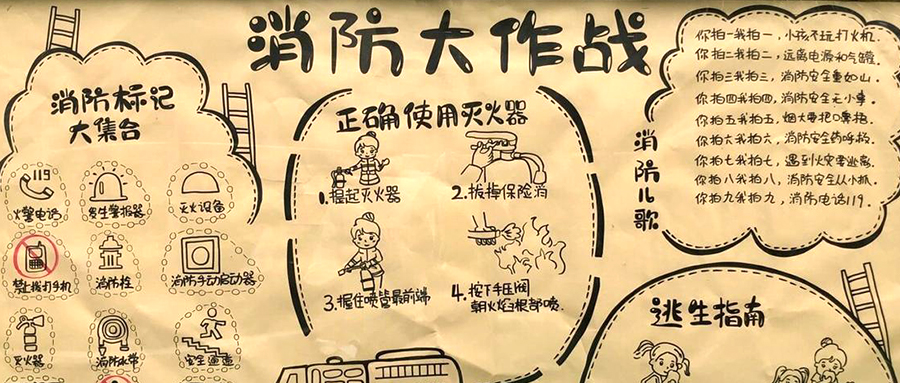 消防大作战
消防标记
大集合
119
火警电话
发生警报器
灭火设备
禁止拨打手机
消防栓
消防手动启动器
灭火器
消防水带
安全通道
正确使用灭火器
1.提起灭火器
2.拔掉保险消
3.握住喷管最前端
4.按下手压阀
朝火焰根部喷.
消防儿歌
你拍一我拍一,小孩不玩打火机.
你拍二我拍二,远离电源和气罐.
你拍三我拍三,消防安全重如山.
你拍四我拍四,消防安全无小事.
你拍五我拍五,烟大要把口鼻捂.
你拍六我拍六,消防安全药呼救.
你拍七我拍七,遇到火灾要逃离.
你拍八我拍八,消防安全从小抓.
你拍九我拍九,消防电话119.
逃生指南